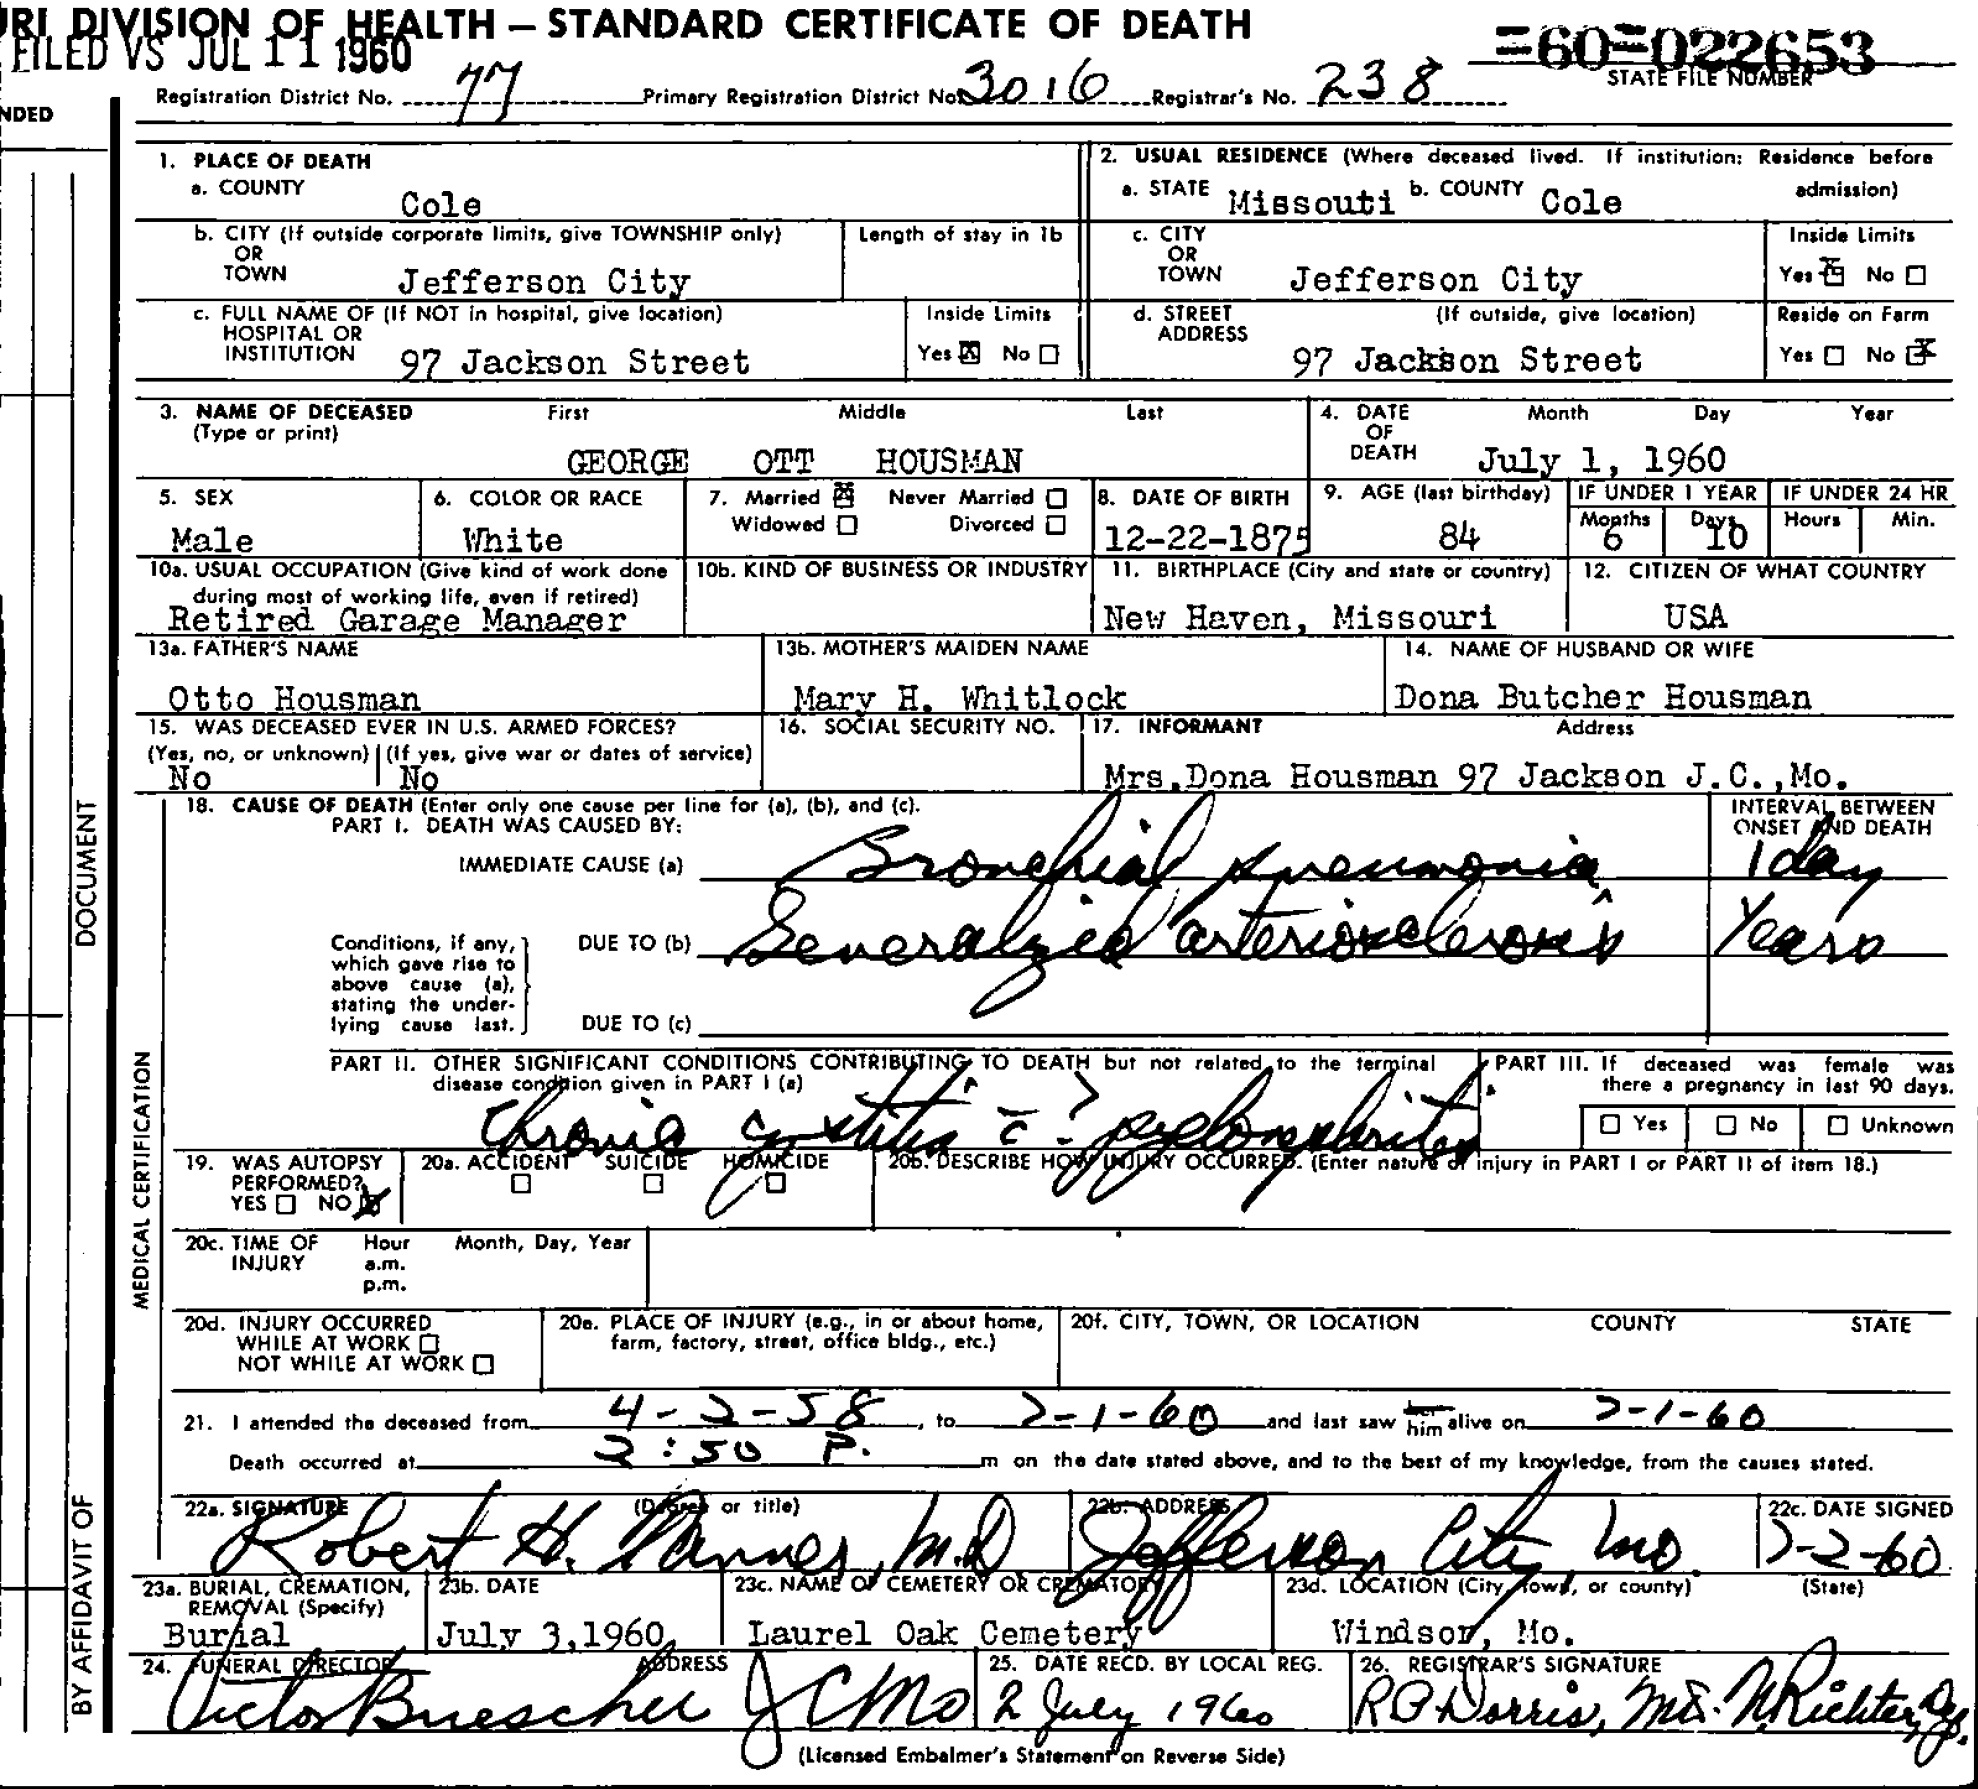 RI DIVISION OF HEALTH — STANDARD CERTIFICATE OF DEATH
FILED VS JUL 11 1960
=60=022653
STATE FILE NUMBER
Registration District No. 77 Primary Registration District No. 3016 Registrar's No. 238
NDED
1. PLACE OF DEATH
a. COUNTY
Cole
2. USUAL RESIDENCE (Where deceased lived. If institution: Residence before admission)
a. STATE Missouti b. COUNTY Cole
b. CITY (If outside corporate limits, give TOWNSHIP only)
OR
TOWN Jefferson City
Length of stay in 1b
c. CITY
OR
TOWN Jefferson City
Inside Limits
Yes X No
c. FULL NAME OF (If NOT in hospital, give location)
HOSPITAL OR
INSTITUTION 97 Jackson Street
Inside Limits
Yes X No
d. STREET (If outside, give location)
ADDRESS
97 Jackson Street
Reside on Farm
Yes No X
3. NAME OF DECEASED First Middle Last
(Type or print)
GEORGE OTT HOUSMAN
4. DATE Month Day Year
OF
DEATH July 1, 1960
5. SEX
Male
6. COLOR OR RACE
White
7. Married X Never Married
Widowed Divorced
8. DATE OF BIRTH
12-22-1875
9. AGE (last birthday)
84
IF UNDER 1 YEAR
Months Days
6 10
IF UNDER 24 HR
Hours Min.
10a. USUAL OCCUPATION (Give kind of work done
during most of working life, even if retired)
Retired Garage Manager
10b. KIND OF BUSINESS OR INDUSTRY
11. BIRTHPLACE (City and state or country)
New Haven, Missouri
12. CITIZEN OF WHAT COUNTRY
USA
13a. FATHER'S NAME
Otto Housman
13b. MOTHER'S MAIDEN NAME
Mary H. Whitlock
14. NAME OF HUSBAND OR WIFE
Dona Butcher Housman
15. WAS DECEASED EVER IN U.S. ARMED FORCES?
(Yes, no, or unknown) (If yes, give war or dates of service)
No No
16. SOCIAL SECURITY NO.
17. INFORMANT Address
Mrs.Dona Housman 97 Jackson J.C.,Mo.
18. CAUSE OF DEATH (Enter only one cause per line for (a), (b), and (c).
PART I. DEATH WAS CAUSED BY:
INTERVAL BETWEEN
ONSET AND DEATH
IMMEDIATE CAUSE (a) Bronchial pneumonia 1 day
Conditions, if any,
which gave rise to
above cause (a),
stating the under-
lying cause last.
DUE TO (b) Generalized arteriosclerosis Years
DUE TO (c)
PART II. OTHER SIGNIFICANT CONDITIONS CONTRIBUTING TO DEATH but not related to the terminal
disease condition given in PART I (a)
Chronic cystitis c̄ ? pyelonephritis
PART III. If deceased was female was
there a pregnancy in last 90 days.
Yes No Unknown
19. WAS AUTOPSY
PERFORMED?
YES NO X
20a. ACCIDENT SUICIDE HOMICIDE
20b. DESCRIBE HOW INJURY OCCURRED. (Enter nature of injury in PART I or PART II of item 18.)
20c. TIME OF INJURY Hour a.m. p.m. Month, Day, Year
20d. INJURY OCCURRED
WHILE AT WORK
NOT WHILE AT WORK
20e. PLACE OF INJURY (e.g., in or about home,
farm, factory, street, office bldg., etc.)
20f. CITY, TOWN, OR LOCATION COUNTY STATE
21. I attended the deceased from 4-2-58, to 7-1-60 and last saw her him alive on 7-1-60
Death occurred at 2:50 P. m on the date stated above, and to the best of my knowledge, from the causes stated.
22a. SIGNATURE (Degree or title)
Robert H. , M.D
22b. ADDRESS
Jefferson City, Mo.
22c. DATE SIGNED
7-2-60
23a. BURIAL, CREMATION,
REMOVAL (Specify)
Burial
23b. DATE
July 3,1960
23c. NAME OF CEMETERY OR CREMATORY
Laurel Oak Cemetery
23d. LOCATION (City, town, or county) (State)
Windsor, Mo.
24. FUNERAL DIRECTOR ADDRESS
Victor Buescher J C Mo
25. DATE RECD. BY LOCAL REG.
2 July 1960
26. REGISTRAR'S SIGNATURE
R P Dorris, MD. N. Richter, Dep.
(Licensed Embalmer's Statement on Reverse Side)
DOCUMENT
MEDICAL CERTIFICATION
BY AFFIDAVIT OF